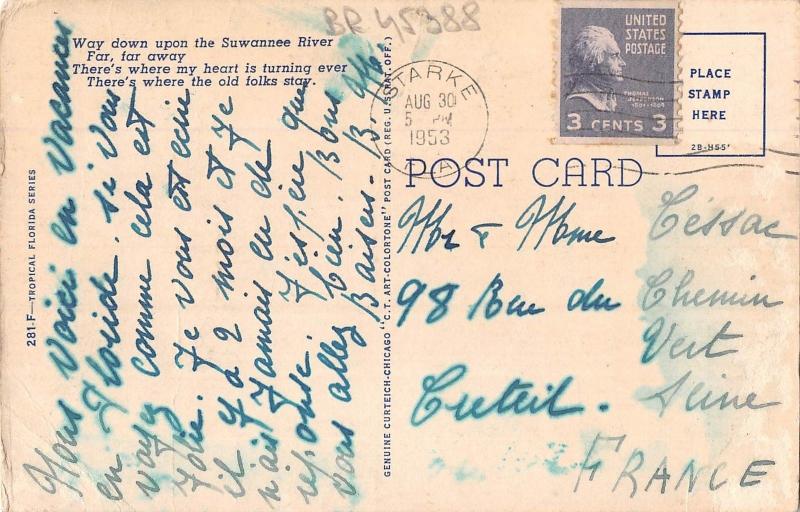 BR 45388
Way down upon the Suwannee River
Far, far away
There's where my heart is turning ever
There's where the old folks stay.
281-F—TROPICAL FLORIDA SERIES
Nous voici en vacances
en Floride. si vous
voyez comme cela est
Jolie. Je vous est écrie
il y a 2 mois et Je
n'ais Jamais eu de
reponse. J'espère que
vous allez bien. Bons
Baisers. B. M.
GENUINE CURTEICH-CHICAGO "C.T. ART-COLORTONE" POST CARD (REG. U.S. PAT. OFF.)
STARKE
AUG 30
5 PM
1953
FLA.
UNITED
STATES
POSTAGE
THOMAS
JEFFERSON
1801-1809
3 CENTS 3
PLACE
STAMP
HERE
2B-H55
POST CARD
Mr & Mme Cessac
98 Rue du Chemin
Vert
Creteil. Seine
FRANCE